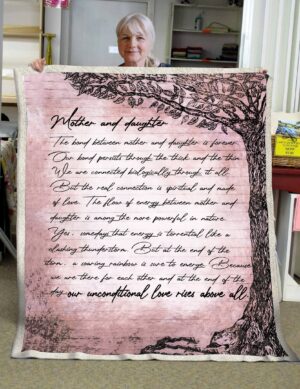 Mother and daughter
The bond between mother and daughter is forever
Our bond persists through the thick and the thin
We are connected biologically through it all
But the real connection is spiritual and made
of love. The flow of energy between mother and
daughter is among the more powerful in nature.
Yes, somedays that energy is torrential like a
clashing thunderstorm. But at the end of the
storm, a soaring rainbow is sure to emerge. Because
we are there for each other and at the end of the
day our unconditional love rises above all